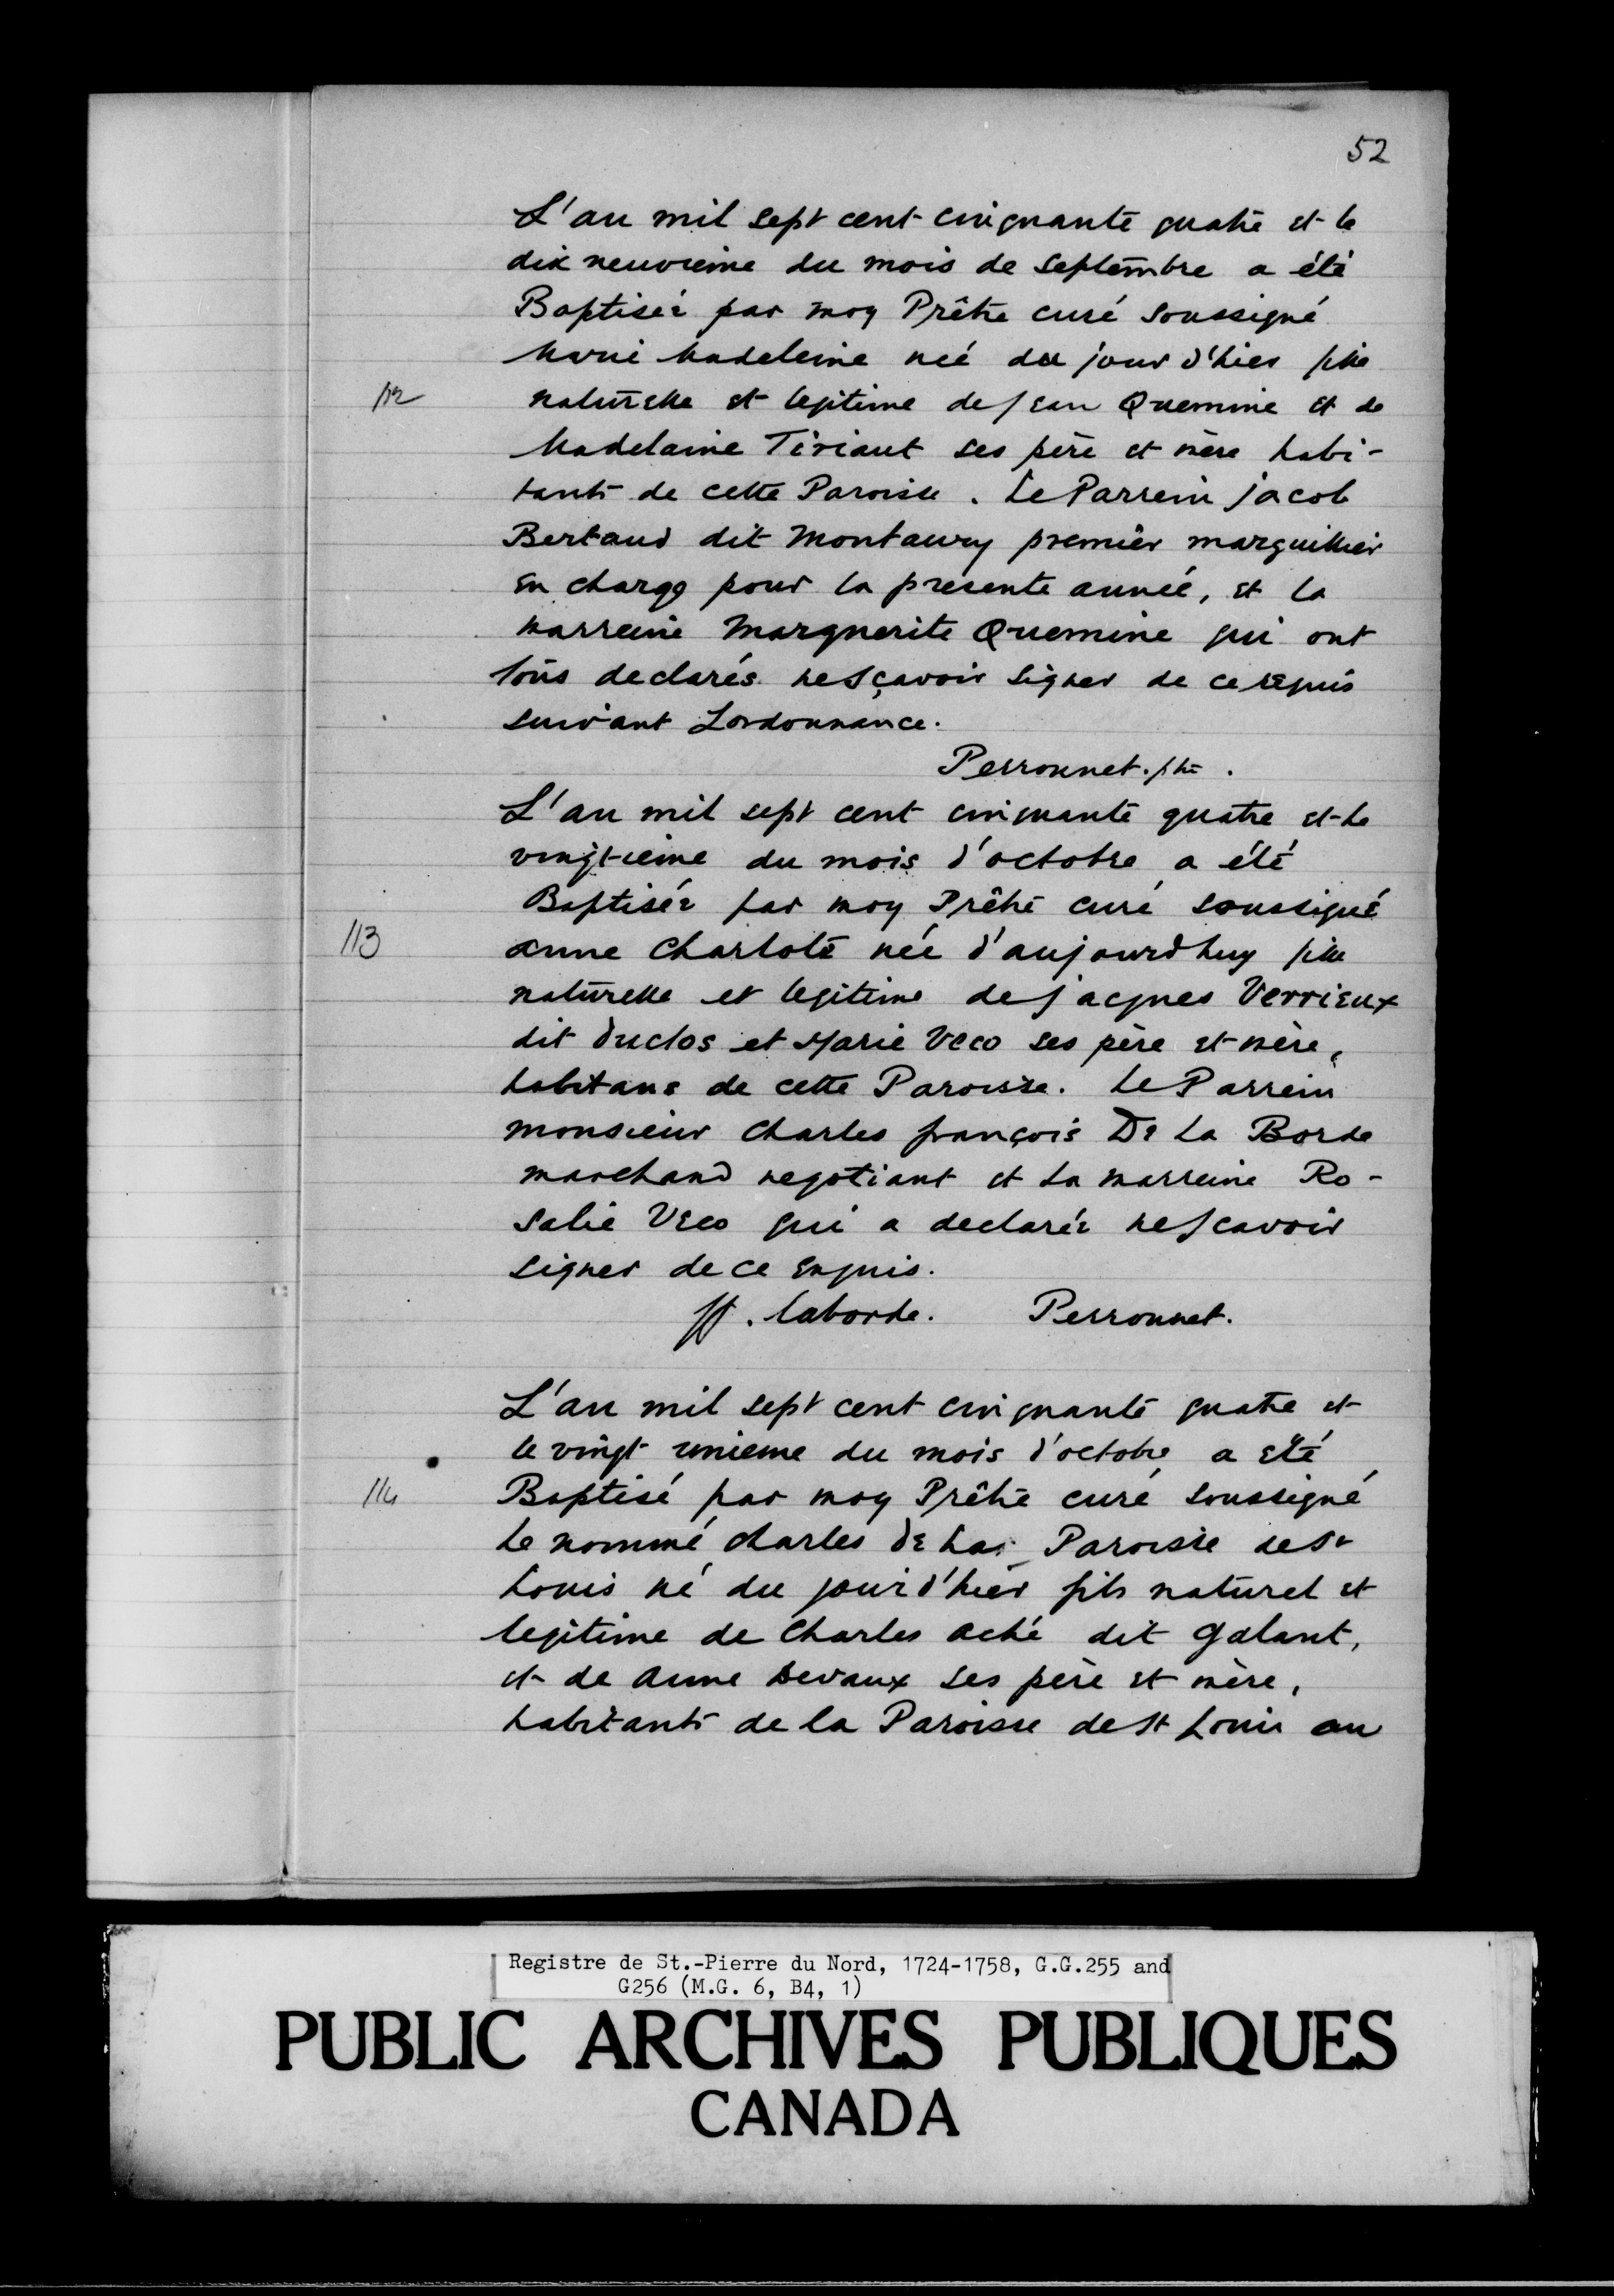 52
L'an mil sept cent cinquante quatre et le
dix neuvieme du mois de Septembre a été
Baptisée par moy Prêtre curé soussigné
Marie Madeleine née du jour d'hier fille
112 naturelle et legitime de jean Quemine et de
Madelaine Tiriaut ses père et mère habi-
tants de cette Paroisse. Le Parrein jacob
Bertaud dit Montaury premier marguillier
en charge pour la presente année, et la
marreine Marguerite Quemine qui ont
tous declarés ne sçavoir signer de ce requis
suivant Lordonnance.
Perronnet. ptre.
L'an mil sept cent cinquante quatre et le
vingtieme du mois d'octobre a été
Baptisée par moy Prêtre curé soussigné
113 anne Charlote née d'aujourdhuy fille
naturelle et legitime de jacques Verrieux
dit duclos et Marie Veco ses père et mère,
habitans de cette Paroisse. Le Parrein
monsieur Charles françois De La Borde
marchand negotiant et La marreine Ro-
salie Veco qui a declarée ne scavoir
signer de ce enquis.
ff. laborde. Perronnet.
L'an mil sept cent cinquante quatre et
le vingt unieme du mois d'octobre a été
114 Baptisé par moy Prêtre curé soussigné
le nommé Charles de La Paroisse de St
Louis né du jour d'hier fils naturel et
legitime de Charles aché dit galant,
et de anne Devaux ses père et mère,
habitants de la Paroisse de St Louis au
Registre de St.-Pierre du Nord, 1724-1758, G.G.255 and
G256 (M.G. 6, B4, 1)
PUBLIC ARCHIVES PUBLIQUES
CANADA